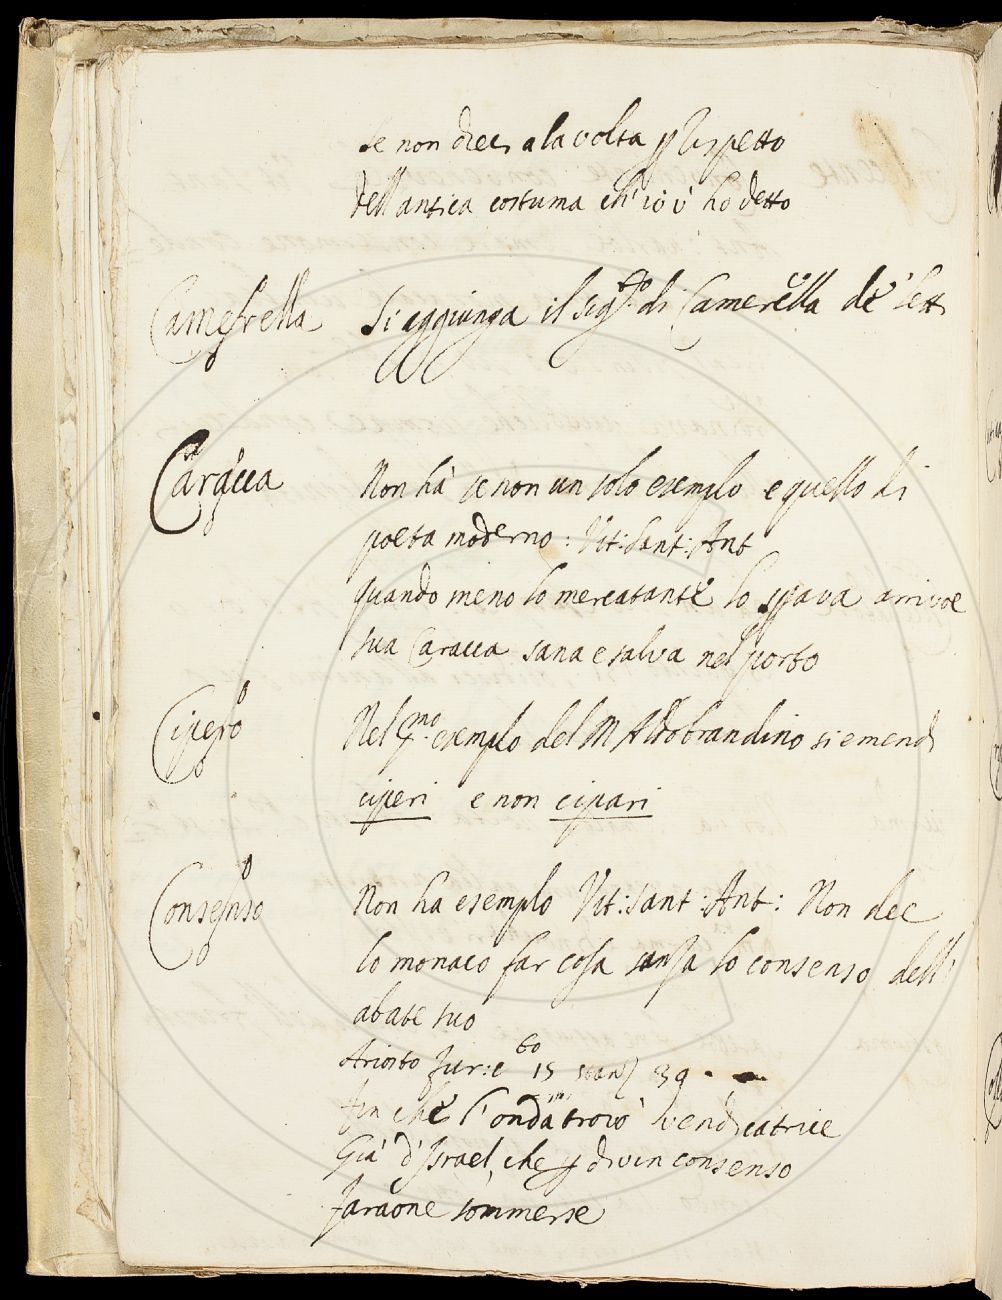 se non dieci a la volta p rispetto
dell antica costuma ch'io v' ho detto
Camerella Si aggiunga il sig.to di Camerella de' lett
Caracca Non hà se non un solo esemplo e quello di
poeta moderno: Vit: Sant: Ant
quando meno lo mercatante lo spava arrivoe
sua Caracca sana e salva nel porto
Cipero Nel p.mo esemplo del M Aldobrandino si emendi
ciperi e non cipari
Consenso Non ha esemplo Vit: Sant: Ant: Non dee
lo monaco far cosa sanza lo consenso dell'
abate suo
Ariosto Fur: c.to 15 stanz 39
fin che l'onda trovò vendicatrice
Già d'Israel, che p divin consenso
Faraone sommerse